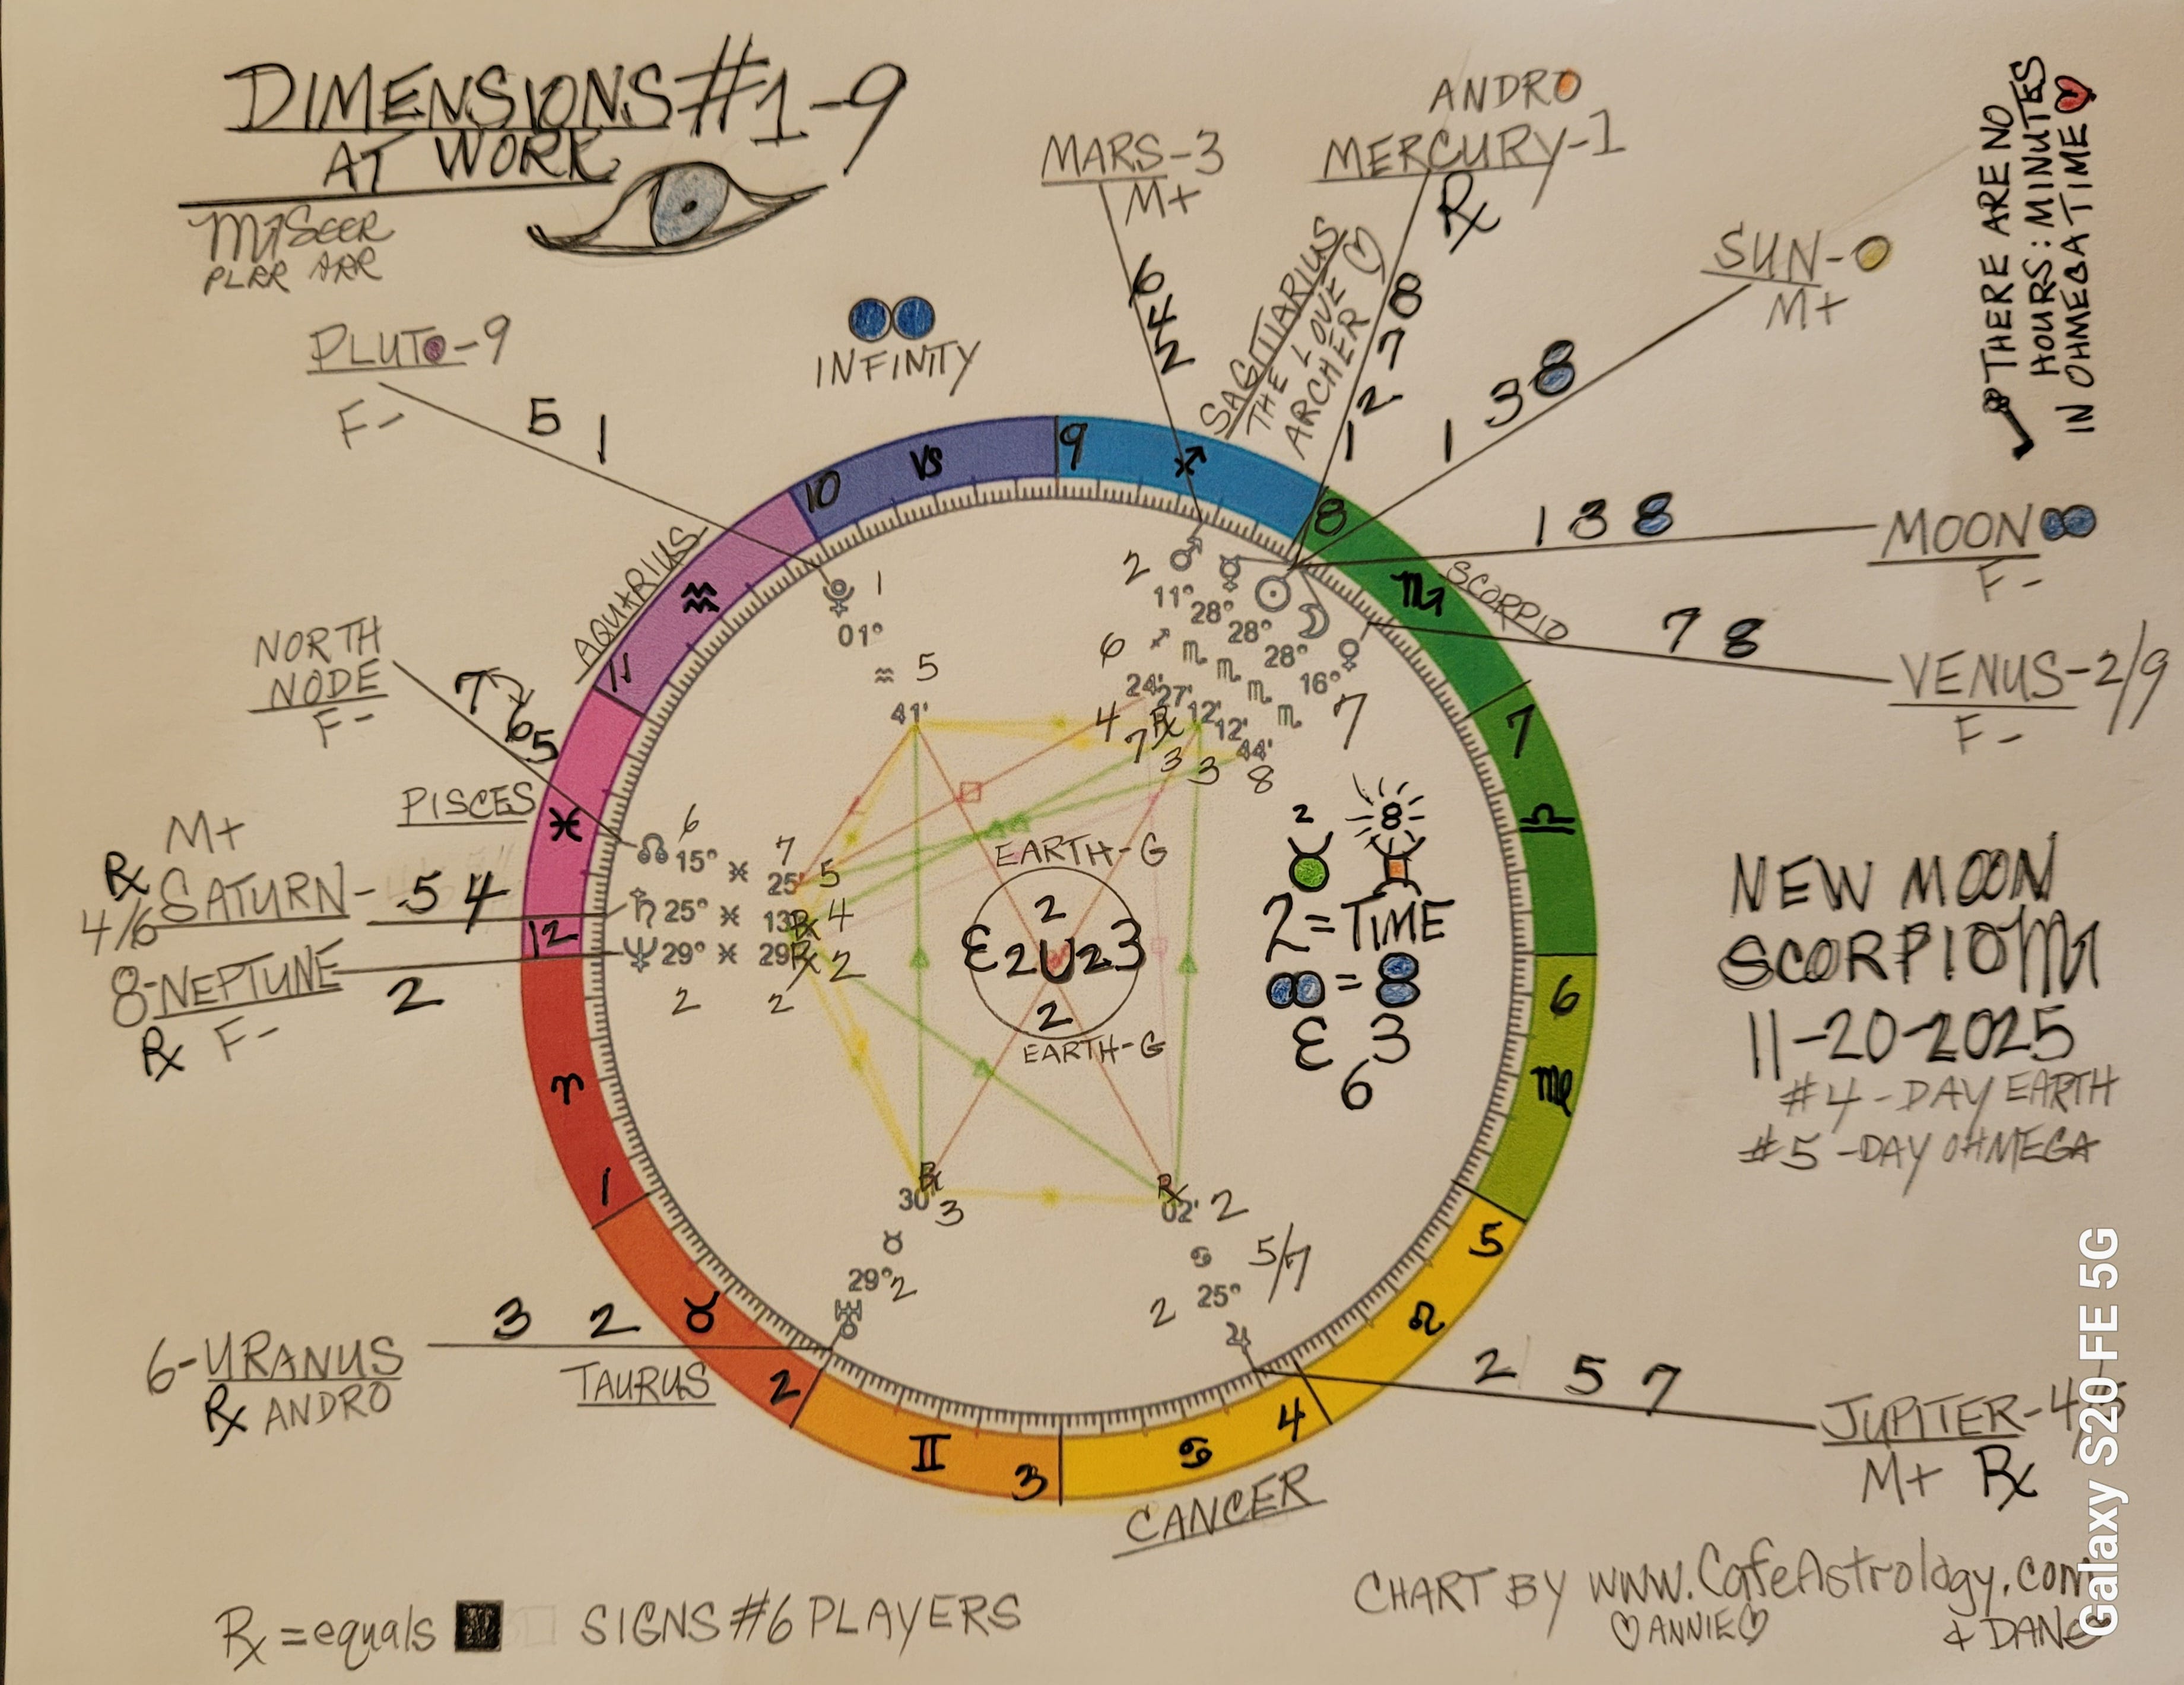 DIMENSIONS #1-9
AT WORK
PLRR ARR
INFINITY
MARS-3
M+
6
4
2
ANDRO
MERCURY-1
℞
8
7
2
1
SAGITTARIUS
THE LOVE
ARCHER
SUN-
M+
1 3 8
THERE ARE NO
HOURS: MINUTES
IN OHMEGA TIME
MOON
F-
1 3 8
SCORPIO
VENUS-2/9
F-
7 8
PLUTO-9
F-
5 1
AQUARIUS
NORTH
NODE
F-
7 6 5
PISCES
M+
℞
4/6 SATURN- 5 4
8-NEPTUNE
2
℞ F-
10 ♑ 9 ♐ 8 ♏ 7 ♎ 6 ♍ 5 ♌ 4 ♋ 3 ♊ 2 ♉ 1 ♈ 12 ♓ 11 ♒
♇ 1
01°
♒ 5
41'
2 ♂
11°
6 ♐
24'
4
☿
28°
♏
27'
℞
7
☉
28°
♏
12'
3
☽
28°
♏
12'
3
♀
16°
♏ 7
44'
8
6
☊ 15° ♓ 25' 5
7
♄ 25° ♓ 13' ℞ 4
♆ 29° ♓ 29' ℞ 2
2 2
EARTH-G
2
Ɛ2U23
2
EARTH-G
2 8
2=TIME
∞ = 8
Ɛ 3
6
℞
30' 3
♉
29° 2
♅
℞
02' 2
♋ 5/7
2 25°
♃
NEW MOON
SCORPIO ♏
11-20-2025
#4-DAY EARTH
#5-DAY OHMEGA
6-URANUS
3 2
℞ ANDRO
TAURUS
CANCER
2 5 7
JUPITER-4
M+ ℞
℞ = equals
SIGNS #6 PLAYERS
CHART BY www.CafeAstrology.com
♡ANNIE♡
+ DANe
Galaxy S20 FE 5G